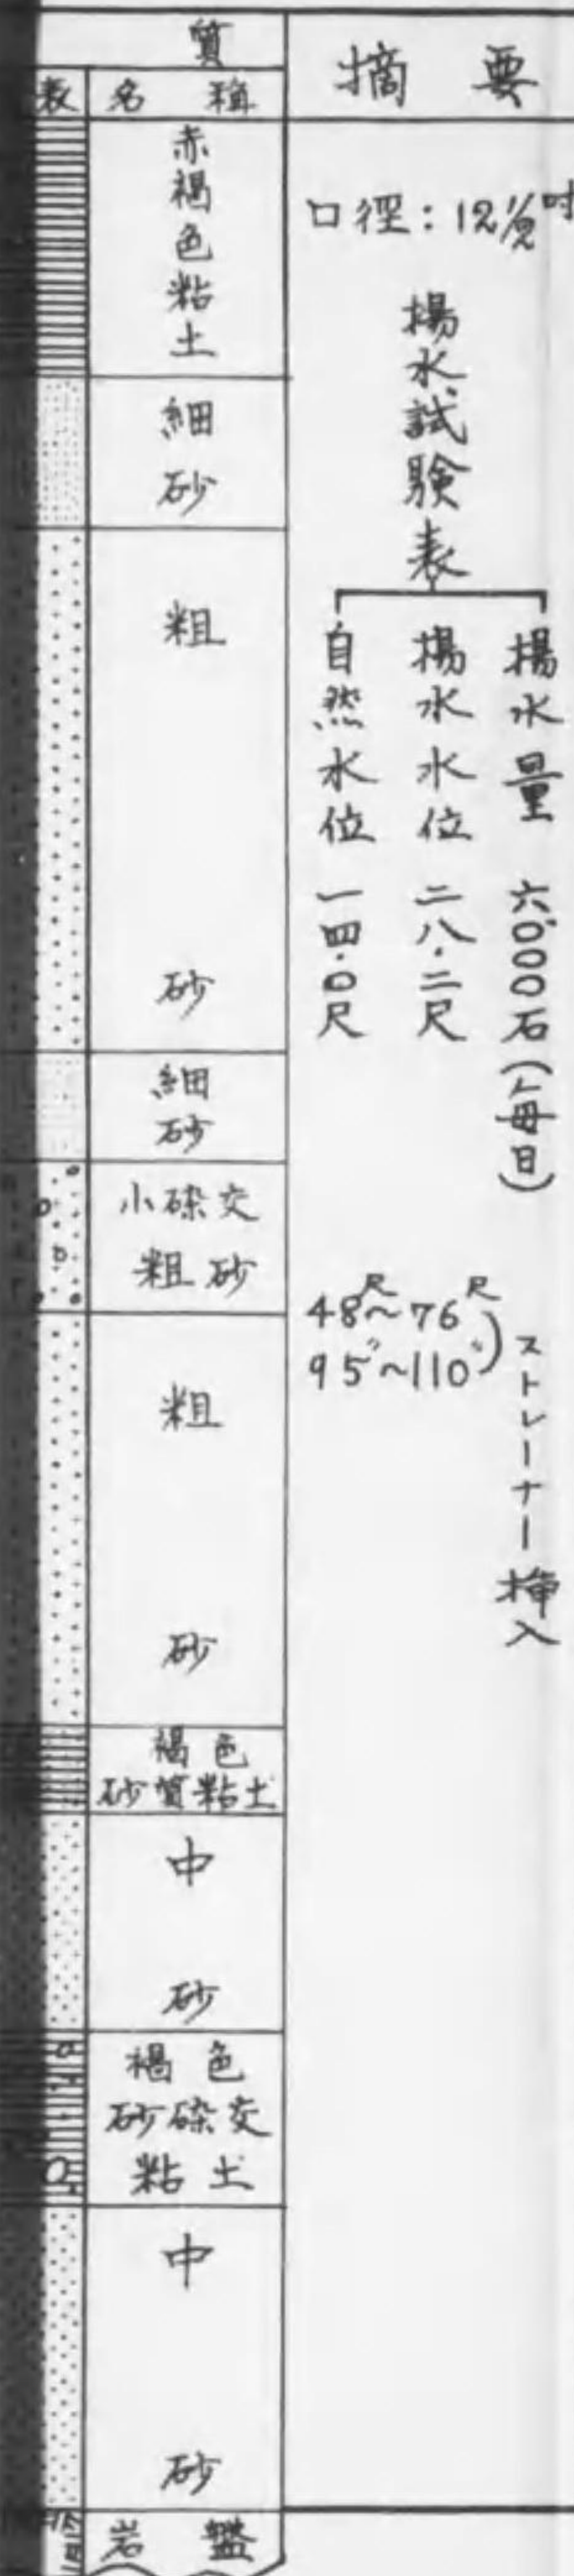 質
表 名稱
赤褐色粘土
細砂
粗砂
細砂
小磜交
粗砂
粗砂
褐色
砂質粘土
中砂
褐色
砂磜交
粘土
中砂
岩盤
摘要
口徑:12½吋
揚水試驗表
揚水量 六,〇〇〇石(毎日)
揚水水位 二八.二尺
自然水位 一四.〇尺
48尺~76尺
95〃~110〃)
ストレーナー挿入